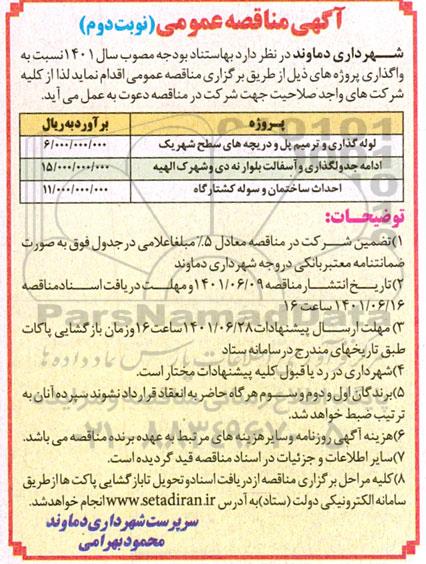 آگهی مناقصه عمومی (نوبت دوم)
شهرداری دماوند در نظر دارد بهاستناد بودجه مصوب سال ۱۴۰۱ نسبت به
واگذاری پروژه های ذیل از طریق برگزاری مناقصه عمومی اقدام نماید لذا از کلیه
شرکت های واجد صلاحیت جهت شرکت در مناقصه دعوت به عمل می آید.
پروژه برآورد به ریال
لوله گذاری و ترمیم پل و دریچه های سطح شهر یک ۶/۰۰۰/۰۰۰/۰۰۰
ادامه جدولگذاری و آسفالت بلوار نه دی وشهرک الهیه ۱۵/۰۰۰/۰۰۰/۰۰۰
احداث ساختمان و سوله کشتارگاه ۱۱/۰۰۰/۰۰۰/۰۰۰
توضیحات:
۱)تضمین شرکت در مناقصه معادل ۵٪ مبلغاعلامی در جدول فوق به صورت
ضمانتنامه معتبربانکی دروجه شهرداری دماوند
۲)تاریخ انتشار مناقصه ۱۴۰۱/۰۶/۰۹ و مهلت دریافت اسنادمناقصه
۱۴۰۱/۰۶/۱۶ ساعت ۱۶
۳) مهلت ارسال پیشنهادات ۱۴۰۱/۰۶/۲۸ ساعت ۱۶ وزمان بازگشایی پاکات
طبق تاریخهای مندرج در سامانه ستاد
۴)شهرداری در رد یا قبول کلیه پیشنهادات مختار است.
۵)برندگان اول و دوم و سوم هر گاه حاضر به انعقاد قرارداد نشوند سپرده آنان به
ترتیب ضبط خواهد شد.
۶)هزینه آگهی روزنامه و سایر هزینه های مرتبط به عهده برنده مناقصه می باشد.
۷)سایر اطلاعات و جزئیات در اسناد مناقصه قید گردیده است.
۸)کلیه مراحل برگزاری مناقصه ازدریافت اسنادو تحویل تابازگشایی پاکت هاازطریق
سامانه الکترونیکی دولت (ستاد)به آدرس www.setadiran.ir انجام خواهدشد.
سرپرست شهرداری دماوند
محمود بهرامی
ParsNamadData